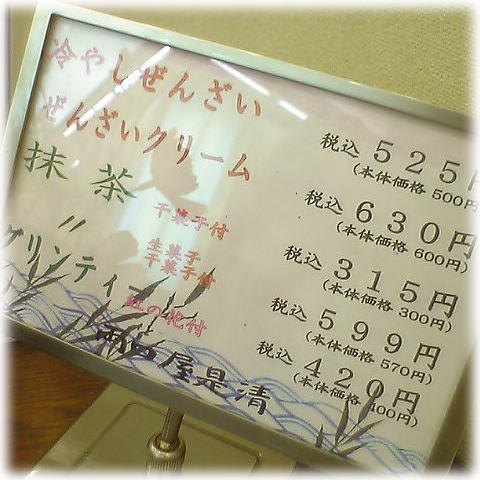 冷やしぜんざい 税込 525円
(本体価格 500円)
ぜんざいクリーム 税込 630円
(本体価格 600円)
抹茶 干菓子付 税込 315円
(本体価格 300円)
〃 生菓子
干菓子付 税込 599円
(本体価格 570円)
グリンティー 税込 420円
(本体価格 400円)
屋是清